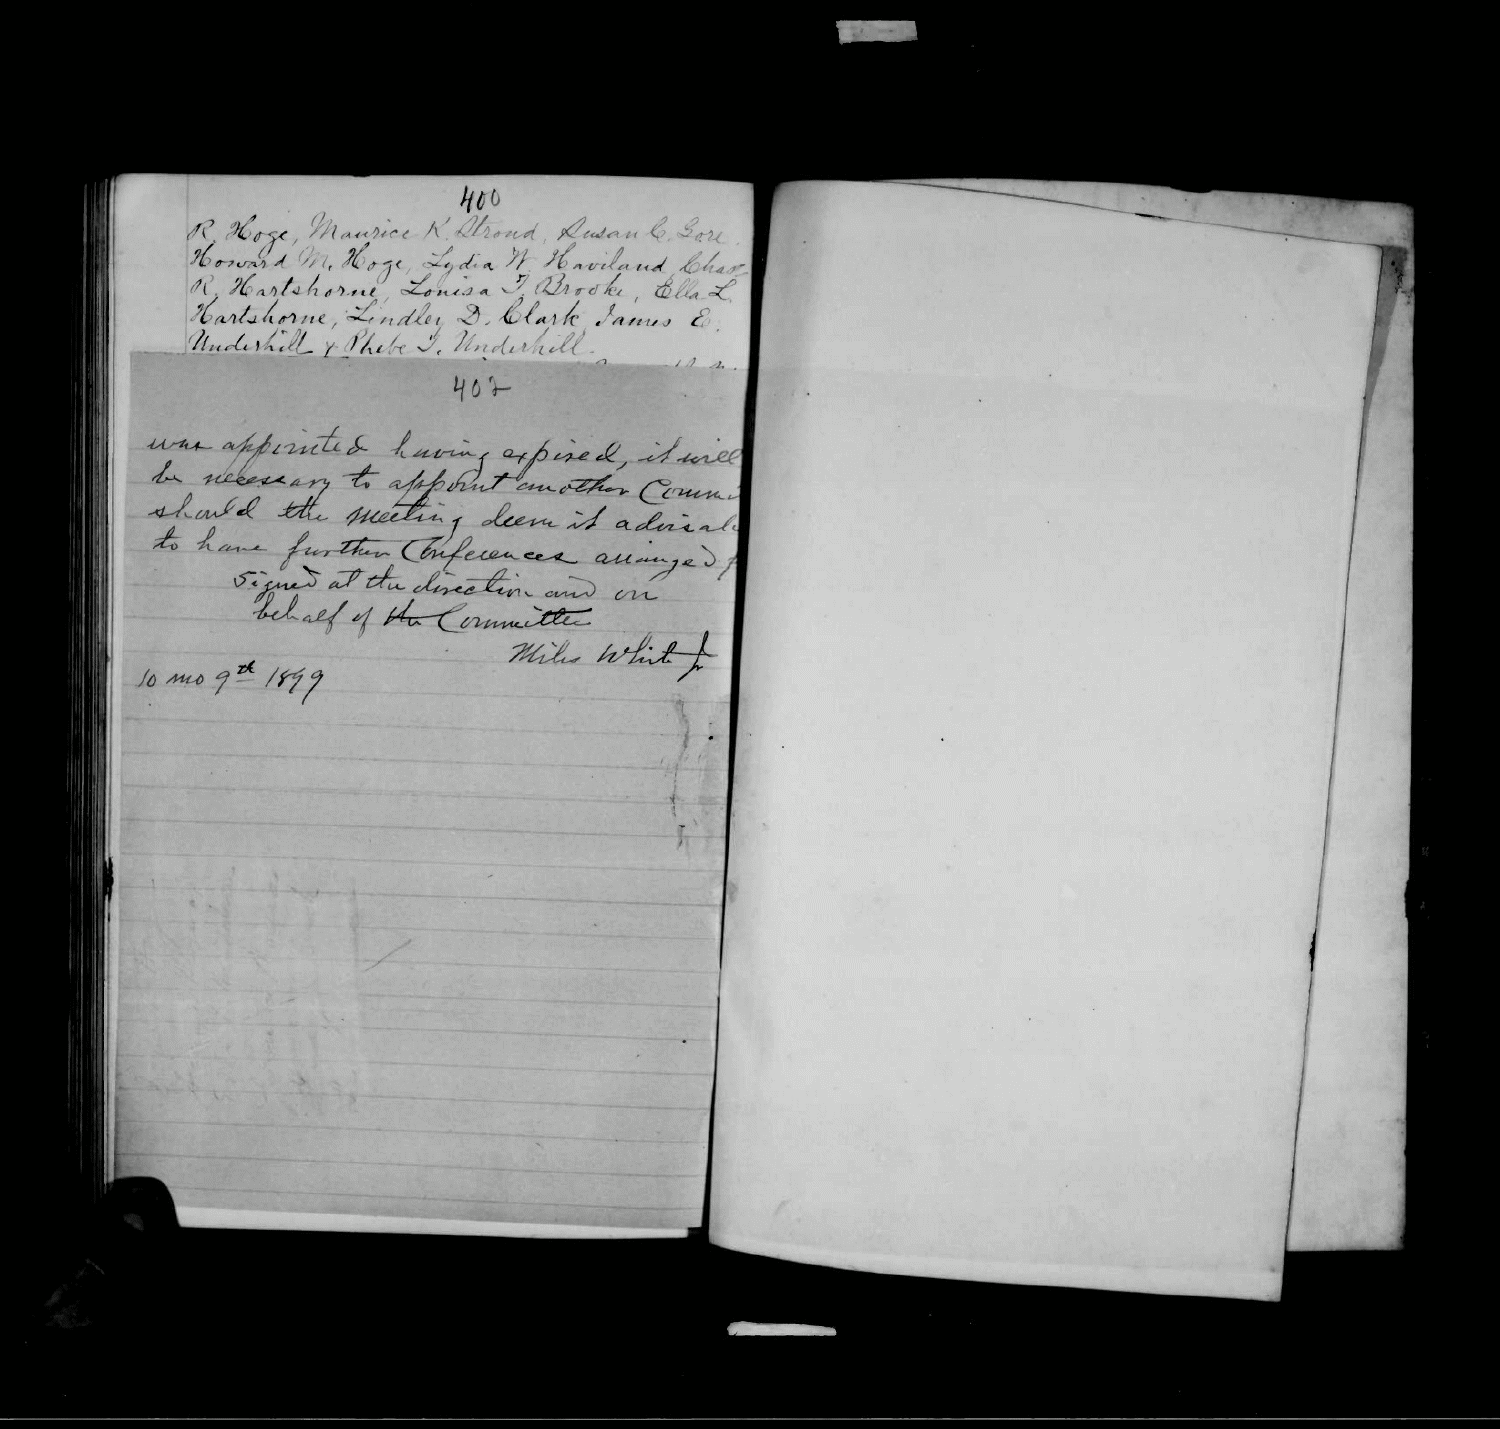 400
R. Hoge, Maurice K. Stroud, Susan C. Gore.
Howard M. Hoge, Lydia W. Haviland, Chas.
R. Hartshorne, Louisa T. Brooke, Ella L.
Hartshorne, Lindley D. Clark, James E.
Underhill & Phebe T. Underhill.
402
was appointed having expired, it will
be necessary to appoint another Comm
should the meeting deem it advisab
to have further Conferences arranged f
Signed at the direction and on
behalf of the Committee
Miles White Jr
10 mo 9th 1899